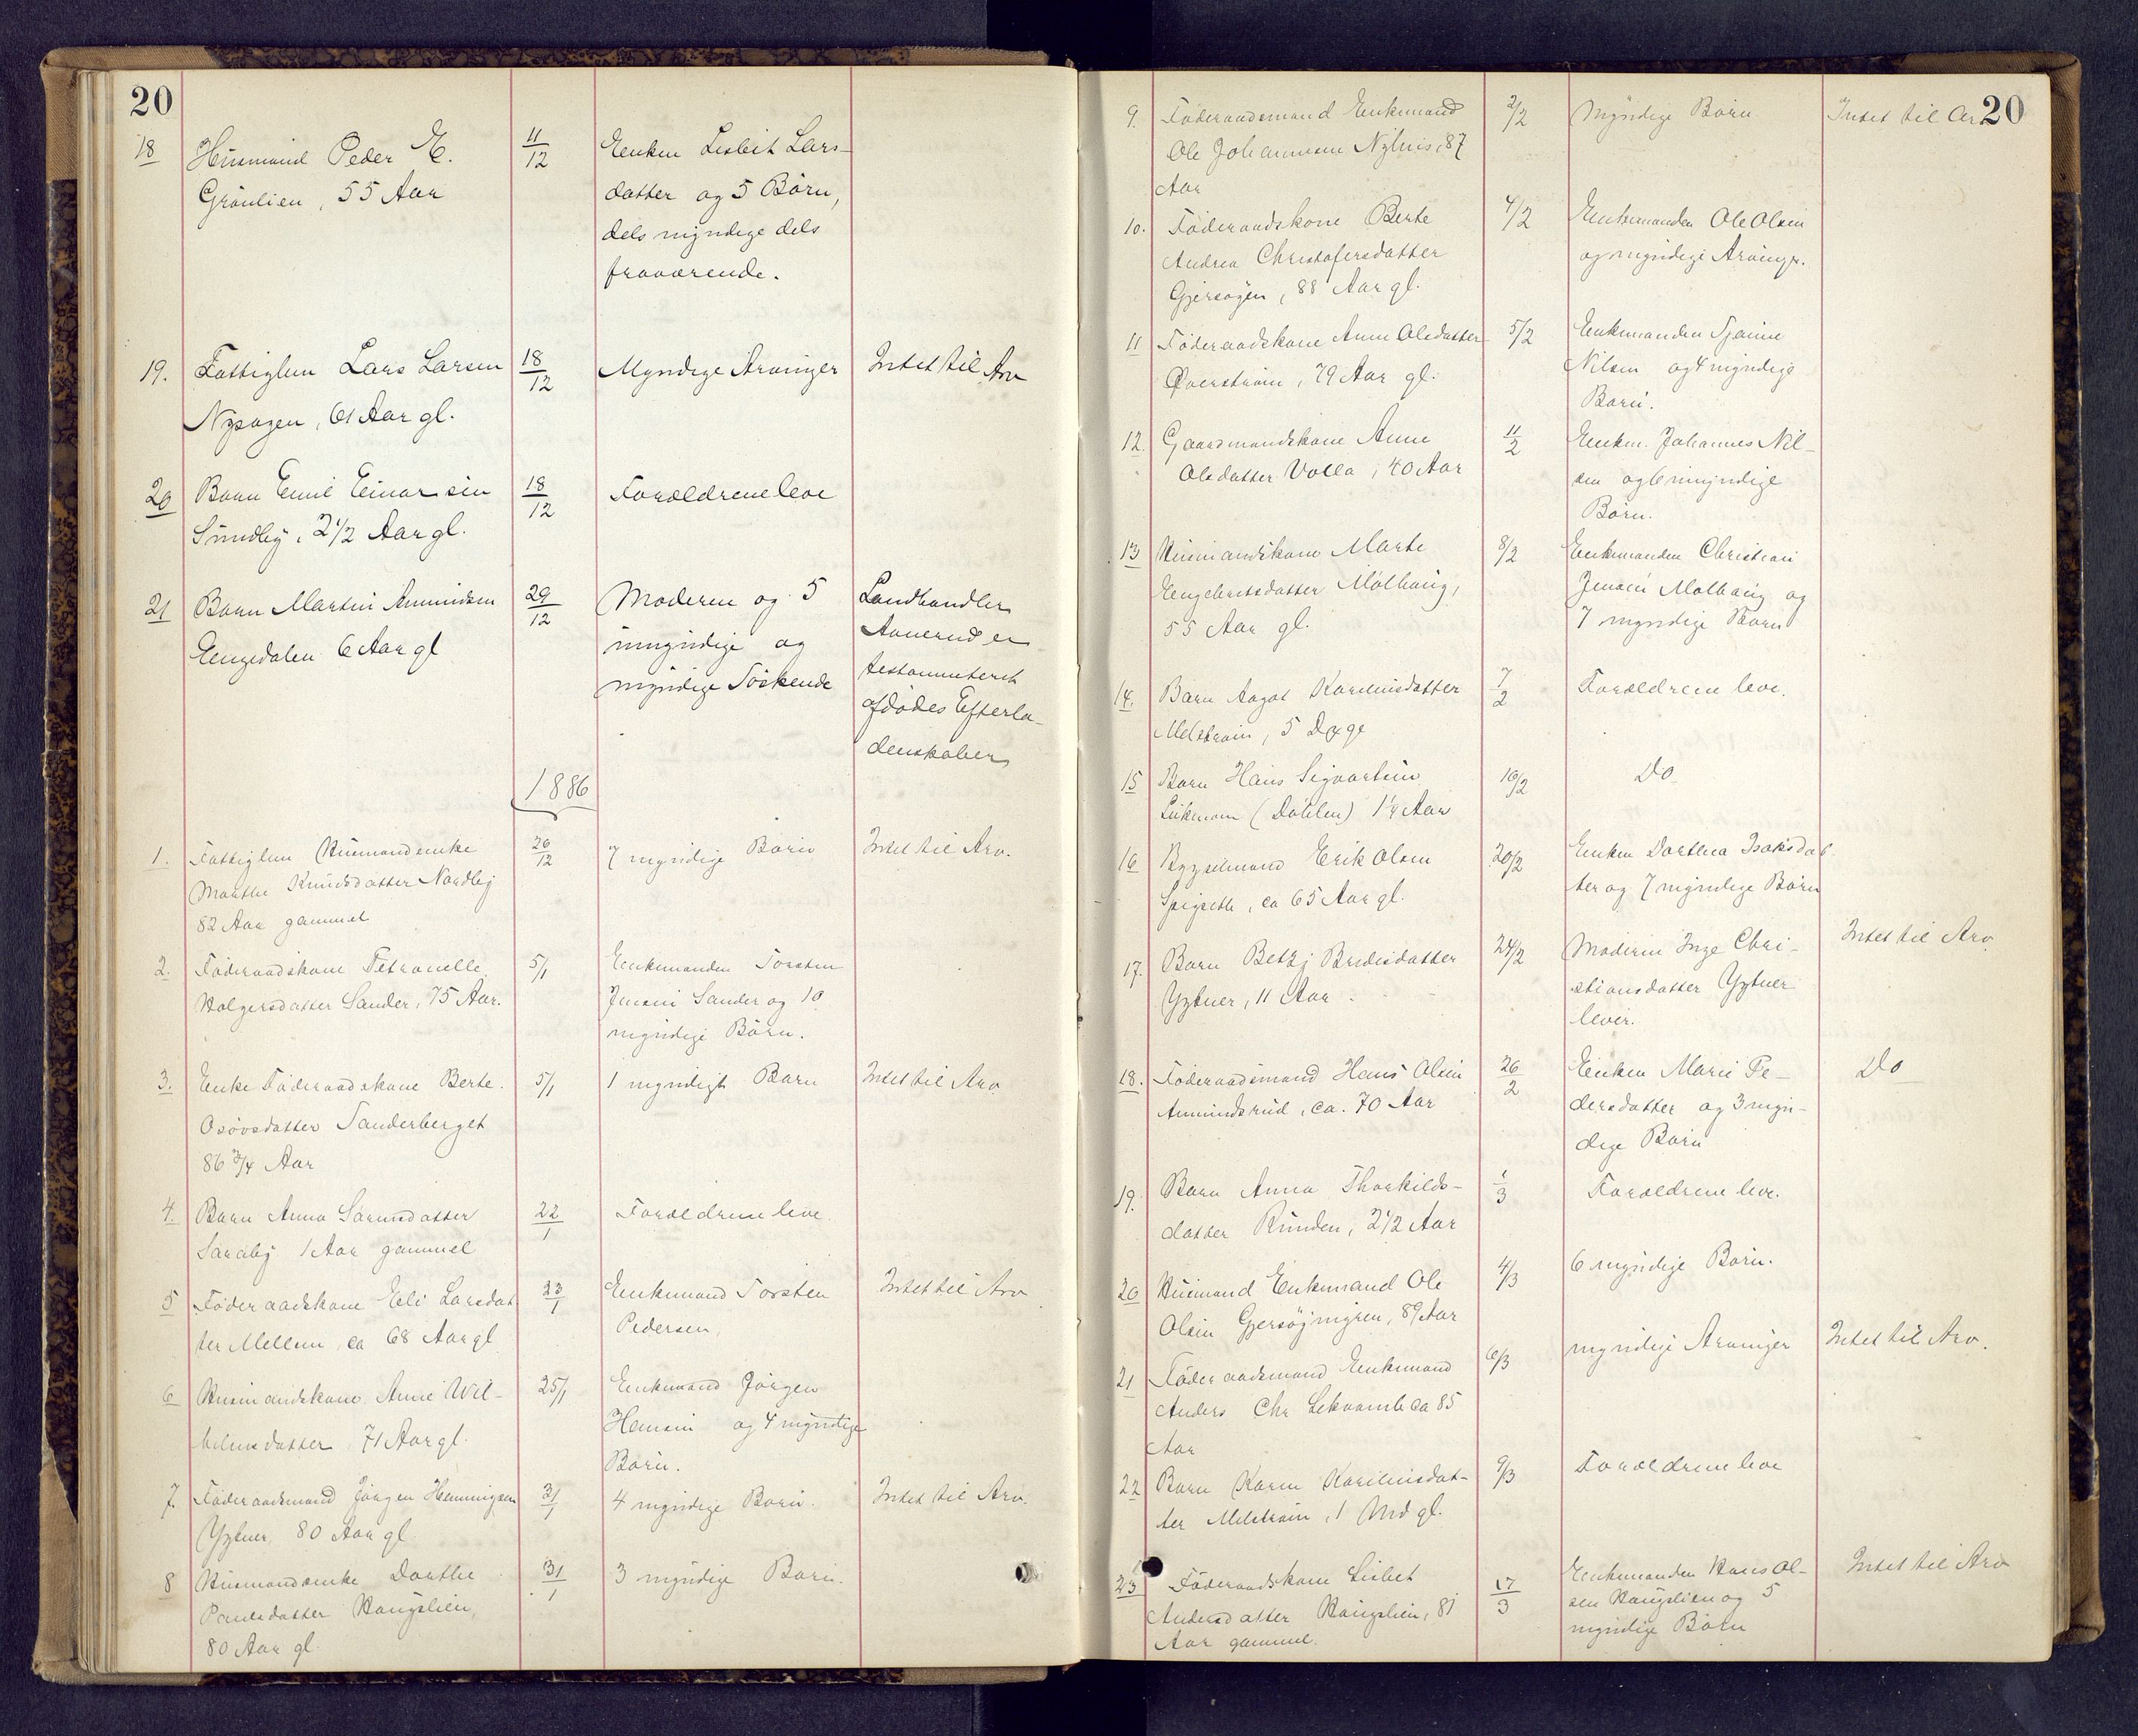 20
18 Husmand Peder E. 11/12 Enken Lisbet Lars-
Grönlien, 55 Aar datter og 5 Börn,
dels myndige dels
fraværende.
19. Fattiglem Lars Larsen 18/12 Myndige Arvinger Intet til Arv
Nysagen, 61 Aar gl.
20 Barn Emil Einarsen 18/12 Forældrene leve
Sundby, 2 1/2 Aar gl.
21 Barn Martin Amundsen 29/12 Moderen og 5 Landhandler
Engedalen 6 Aar gl umyndige og Aanerud er
myndige Söskende testamenteret
afdödes Efterla-
denskaber
1886
1. Fattiglem Husmandsenke 26/12 7 myndige Börn Intet til Arv.
Marthe Knudsdatter Nordby
82 Aar gammel
2. Föderaadskone Petronelle 5/1 Enkemanden Torsten
Holgersdatter Sander, 75 Aar. Jensen Sander og 10
myndige Börn.
3. Enke Föderaadskone Berte 5/1 1 myndigt Barn Intet til Arv
Osövsdatter Sanderberget
86 3/4 Aar
4. Barn Anna Sörensdatter 22/1 Forældrene leve
Saraby 1 Aar gammel
5 Föderaadskone Eli Larsdat- 23/1 Enkemand Torsten Intet til Arv
ter Mellem, ca 68 Aar gl Pedersen,
6 Husmandskone Anne Wil- 25/1 Enkemand Jörgen
helmsdatter 71 Aar gl. Hansen og 4 myndige
Börn.
7. Föderaadsmand Jörgen Henningsen 31/1 4 myndige Börn. Intet til Arv.
Ystner, 80 Aar gl
8 Husmandsenke Dorthe 31/1 3 myndige Börn.
Paulsdatter Haugslien,
80 Aar gl.
20
9. Föderaadsmand Enkemand 2/2 Myndige Börn Intet til Arv
Ole Johannesen Nyhus, 87
Aar
10. Föderaadskone Berte 4/2 Enkemanden Ole Olsen
Andrea Christofersdatter og myndige Arvinger.
Gjersöyen, 88 Aar gl.
11 Föderaadskone Anne Olsdatter 5/2 Enkemanden
Överström, 79 Aar gl. Nilsen og 4 myndige
Börn.
12. Gaardmandskone Anne 11/2 Enkem. Johannes Nil-
Olsdatter Volla, 40 Aar sen og 6 umyndige
Börn.
13 Husmandskone Marte 8/2 Enkemanden Christian
Engebretsdatter Molhaug, Jensen Molhaug og
55 Aar gl. 7 myndige Börn
14. Barn Aagot Karelinsdatter 7/2 Forældrene leve.
Melström, 5 Dage
15 Barn Hans Sigvartsen 16/2 Do
(Dahlen) 1 1/4 Aar
16 Bygselmand Erik Olsen 20/2 Enken Dorthea Isaksdat-
Spigseth, ca 65 Aar gl. ter og 7 myndige Börn
17. Barn Betzy Bredesdatter 24/2 Moderen Inge Chri- Intet til Arv
Ystner, 11 Aar stiansdatter Ystner
lever.
18. Föderaadsmand Hans Olsen 26/2 Enken Marie Pe- Do
Amundsrud, ca. 70 Aar dersdatter og 3 myn-
dige Börn
19. Barn Anna Thorkilds- 1/3 Forældrene leve.
datter Runden, 2 1/2 Aar
20 Husmand Enkemand Ole 4/3 6 myndige Börn.
Olsen Gjersöjmyren, 89 Aar
21 Föderaadsmand Enkemand 6/3 myndige Arvinger Intet til Arv.
Anders Chr. ca 85
Aar
22 Barn Karen Karelinsdat- 9/3 Forældrene leve
ter Melström, 1 Md gl.
23 Föderaadskone Lisbet 17/3 Enkemanden Hans Ol- Intet til Arv
Andersdatter Haugslien, 81 sen Haugslien og 5
Aar gammel. myndige Börn